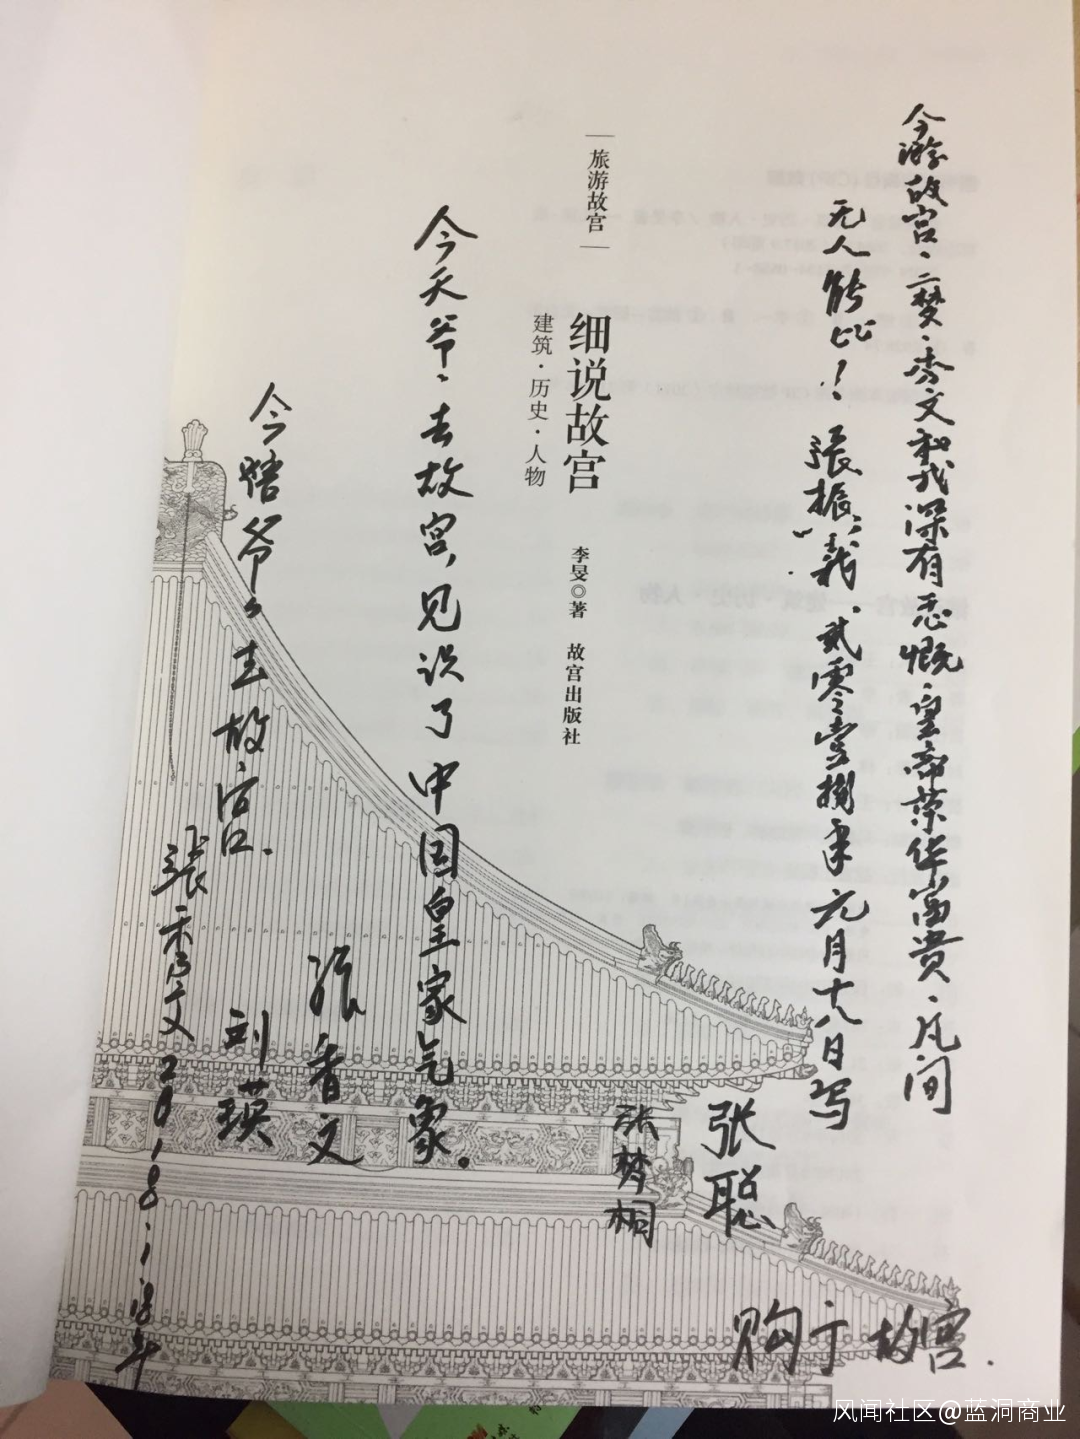 今游故宫、二樊、秀文和我深有感慨、皇帝荣华富贵、凡间
无人能比！张振义、贰零壹捌年元月十八日写
张聪
购于故宫.
旅游故宫
细说故宫
建筑·历史·人物
李旻◎著 故宫出版社
张梦桐
今天爷、去故宫,见识了中国皇家气象.
张秀文
今陪爷々去故宫.
刘瑛
张秀文2018.1.18年
风闻社区@蓝洞商业